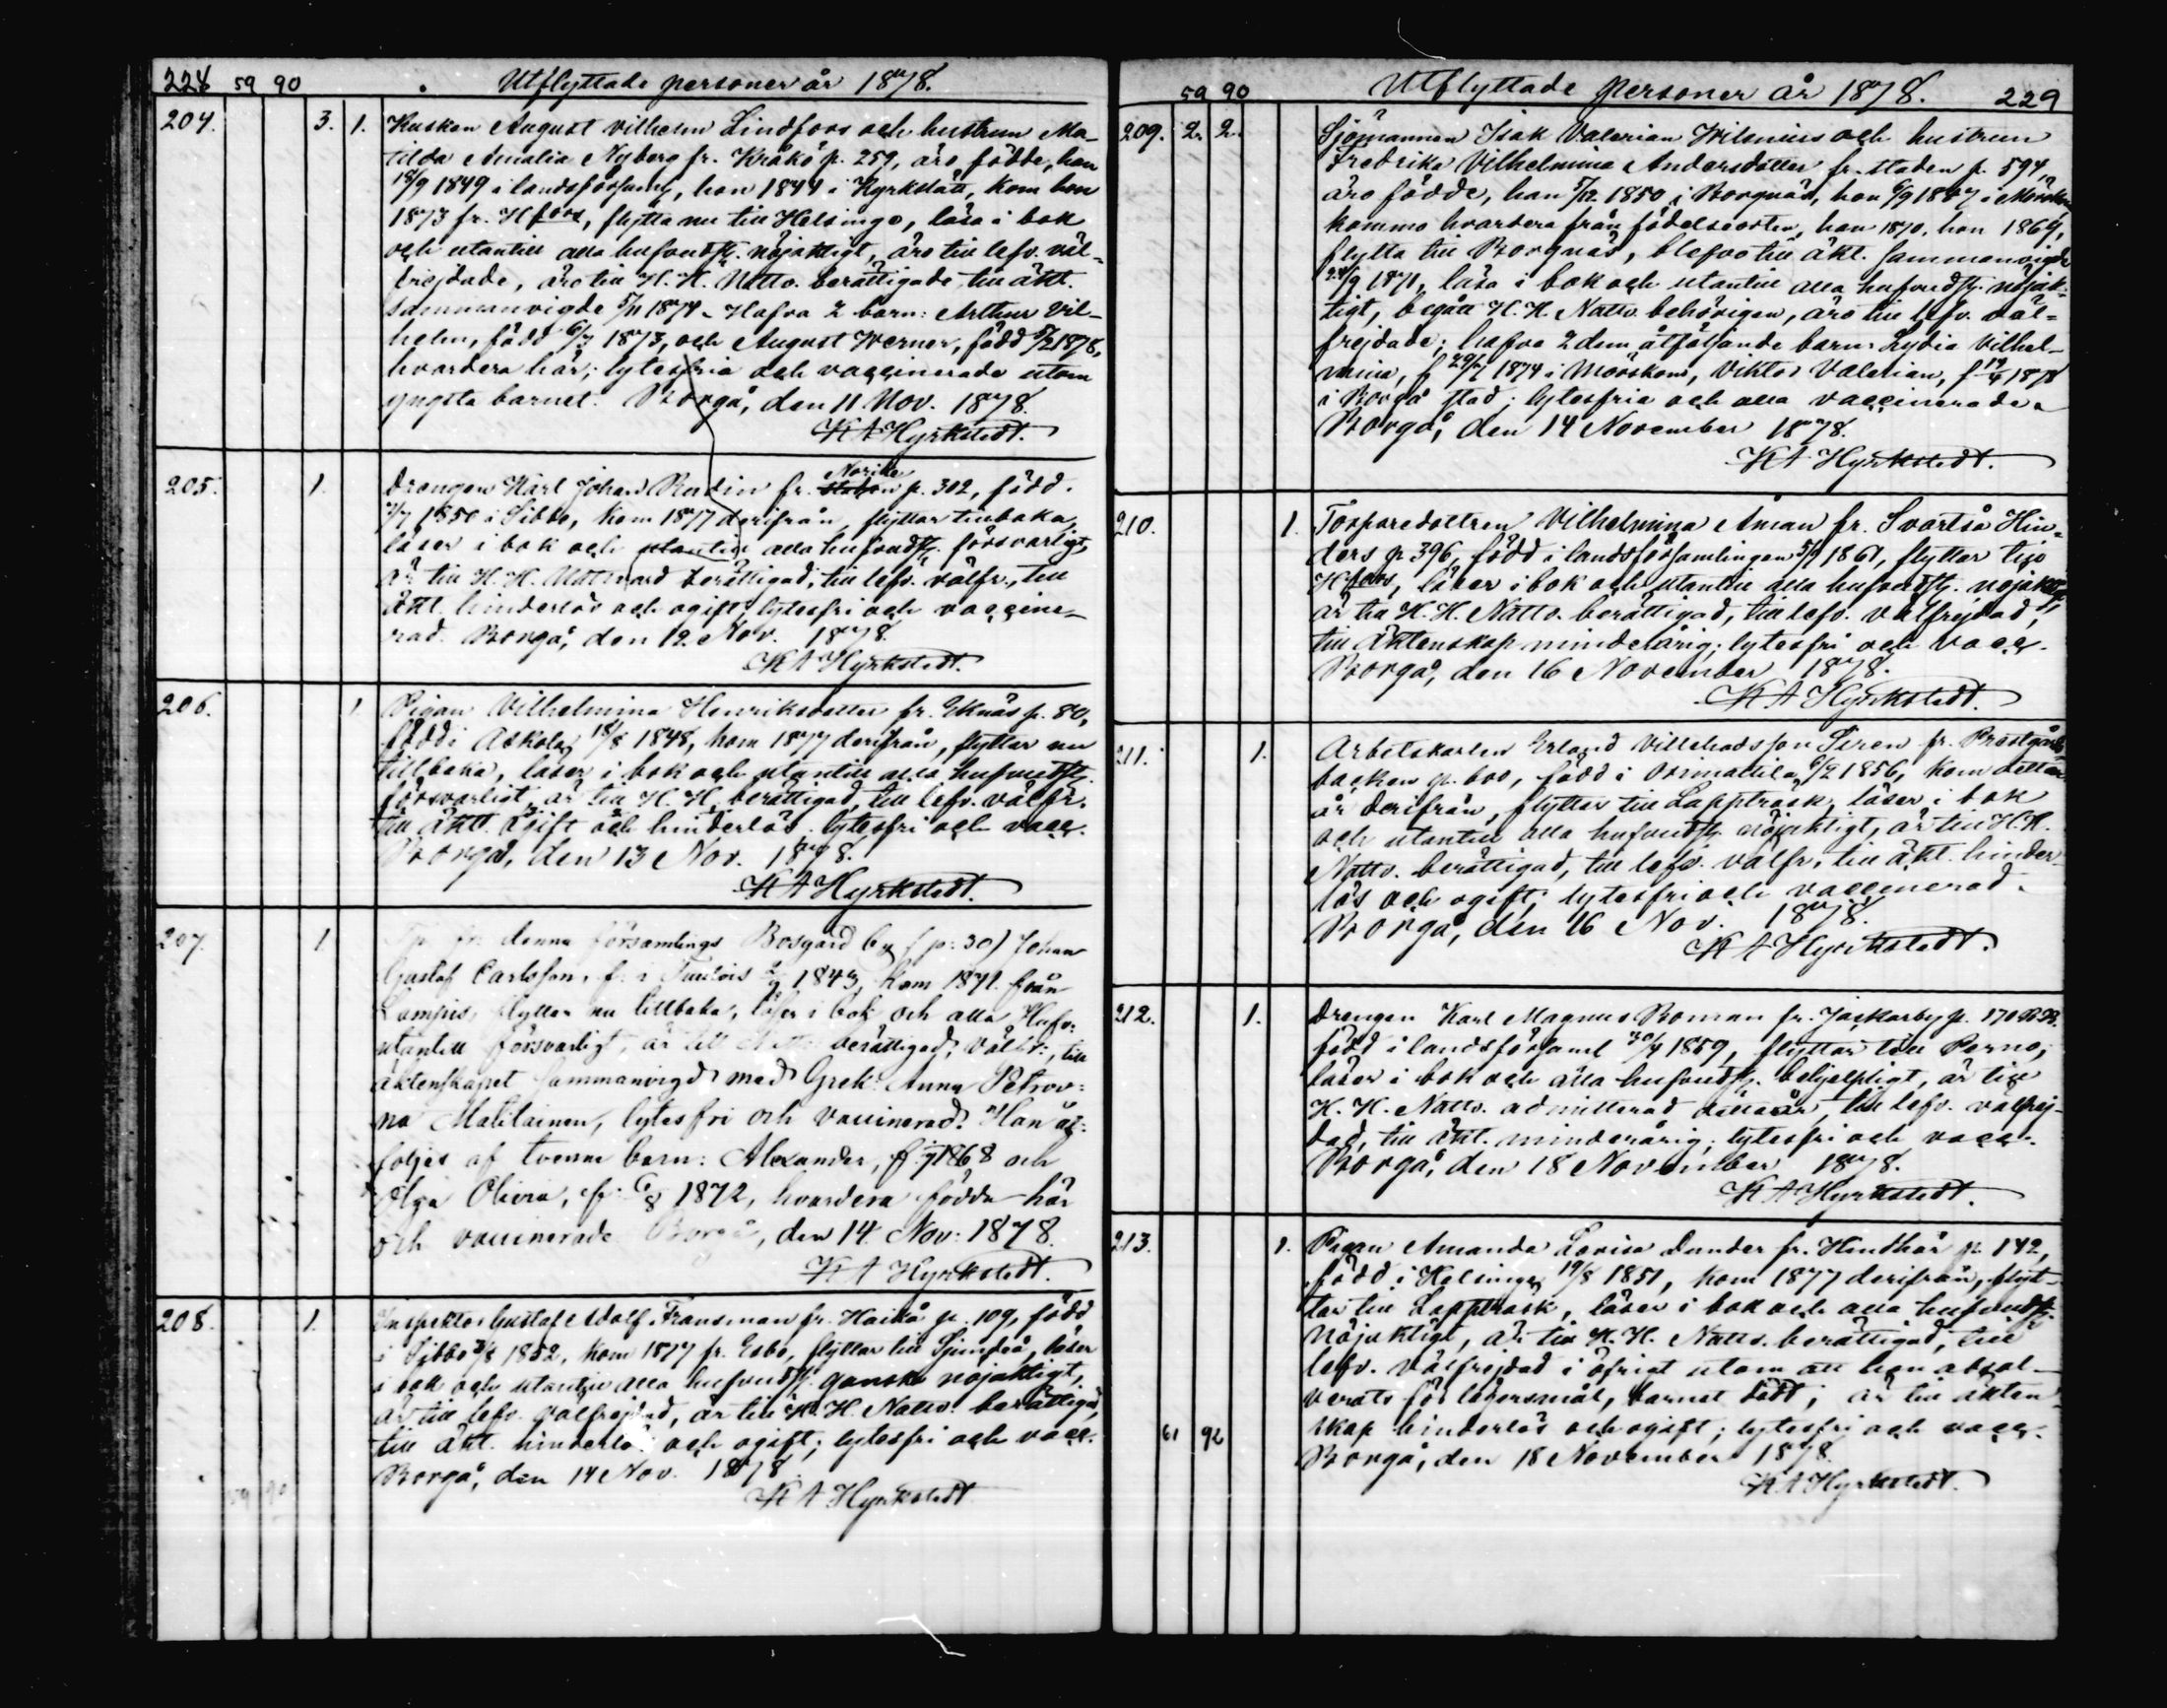 228 59 90 Utflyttade personer år 1878.
204. 3. 1. Kusken August Vilhelm Lindfors och hustrun Ma-
tilda Amalia Nyberg fr. Kråkö p. 259, äro födde, han
18/9 1849 i landsförsaml, hon 1844 i Kyrkslätt, kom hon
1873 fr. Hfors, flytta nu till Helsinge, läsa i bok
och utantill alla hufvudst. nöjaktigt, äro till lefv. väl-
frejdade, äro till H. H. Nattv. berättigade till äkt.
sammanvigde 5/11 1874. Hafva 2 barn: Arthur Vil-
helm, född 6/7 1875, och August Werner, född 5/2 1878,
hvardera här; lytesfria och vaccinerade utom
yngsta barnet. Borgå, den 11 Nov. 1878.
K A Hyrkstedt.
205. 1. Drängen Karl Johan Rudin fr. Norike p. 302, född
1/7 1850 i Sibbo, kom 1877 derifrån, flyttar tillbaka,
läser i bok och utantill alla hufvudst. försvarligt,
är till H. H. Nattvard berättigad, till lefv. välfr., till
äkt. hinderlös och ogift, lytesfri och vaccine-
rad. Borgå, den 12 Nov. 1878.
K A Hyrkstedt.
206. 1. Pigan Vilhelmina Henriksdotter fr. Eknäs p. 80,
född i Askola 18/8 1848, kom 1877 derifrån, flyttar nu
tillbaka, läser i bok och utantill alla hufvudst.
försvarligt, är till H. H. berättigad, till lefv. välfr.
till äkt. ogift och hinderlös, lytesfri och vacc.
Borgå, den 13 Nov. 1878.
K A Hyrkstedt.
207. 1 fr. denna församlings Bosgård by (p: 30) Johan
Gustaf Carlsson, f. i 1843, kom 1871 från
Lampis, flyttar nu tillbaka, läser i bok och alla Hufv:
utantill försvarligt, är till Nattv. berättigad, välfr:, till
äktenskapet sammanvigd med Grek: Anna Petrov:
na Matilainen, lytesfri och vaccinerad. Han åt:
följes af tvenne barn: Alexander, f. 1868 och
Olga Olivia, f. 6/8 1872, hvardera födda här
och vaccinerade Borgå, den 14 Nov: 1878.
K A Hyrkstedt.
208. 1. Inspektor Gustaf Adolf Fransman fr. Haikå p. 109, född
i Sibbo 1852, kom 1877 fr. Esbo, flyttar till Sjundeå, läser
i bok och utantill alla hufvudst. ganska nöjaktigt,
är till lefv. välfrejdad, är till H. H. Nattv. berättigad,
till äkt. hinderlös och ogift; lytesfri och vacc.
Borgå, den 14 Nov. 1878.
K A Hyrkstedt
59 90
59 90 Utflyttade personer år 1878. 229
209. 2. 2. Sjömannen Isak Valerian Wilenius och hustrun
Fredrika Vilhelmina Andersdotter fr. staden p. 594,
äro födde, han 5/12 1850 i Borgnäs, hon 6/9 1847 i Mörskom
kommo hvardera från födelseorten, han 1870, hon 1869,
flytta till Borgnäs, blefvo till äkt. sammanvigde
24/9 1871, läsa i bok och utantill alla hufvudst. nöjak-
tigt, begått H. H. Nattv. behörigen, äro till lefv. väl-
frejdade; hafva 2 dem åtföljande barn Lydia Vilhel-
mina, f 1874 i Mörskom, Viktor Valerian, f 1878
i Borgå stad; lytesfria och alla vaccinerade.
Borgå, den 14 November 1878.
K A Hyrkstedt.
210. 1. Torparedottren Vilhelmina Åman fr. Svartså Hin-
ders p 396, född i landsförsamlingen 5/9 1861, flyttar till
Hfors, läser i bok och utantill alla hufvudst. nöjaktigt,
är till H. H. Nattv. berättigad, till lefv. välfrejdad,
till äktenskap minderårig; lytesfri och vacc.
Borgå, den 16 November 1878.
K A Hyrkstedt.
211. 1. Arbetskarlen Erland Villehadsson Siren fr. Prostgårds
backen p. 600, född i Orimattila 6/2 1856, kom detta
år derifrån, flyttar till Lappträsk, läser i bok
och utantill alla hufvudst. nöjaktigt, är till H. H.
Nattv. berättigad, till lefv. välfr, till äkt. hinder-
lös och ogift, lytesfri och vaccinerad.
Borgå, den 16 Nov. 1878.
K A Hyrkstedt.
212. 1. Drängen Karl Magnus Roman fr. Jackarby p. 170
född i landsförsaml 30/4 1859, flyttar till Perno,
läser i bok och alla hufvudst. behjelpligt, är till
H. H. Nattv. admitterad detta år, till lefv. välfrej-
dad, till äkt. minderårig; lytesfri och vacc.
Borgå, den 18 November 1878.
K A Hyrkstedt.
213. 1. Pigan Amanda Lovisa Dunder fr. Hindhår p. 142,
född i Helsinge 19/8 1851, kom 1877 derifrån, flyt-
tar till Lappträsk, läser i bok och alla hufvudst.
nöjaktigt, är till H. H. Nattv. berättigad, till
lefv. välfrejdad i öfrigt utom att hon absol-
verats för lägersmål, barnet dödt; är till äkten-
skap hinderlös och ogift; lytesfri och vacc.
61 92 Borgå, den 18 November 1878.
K A Hyrkstedt.